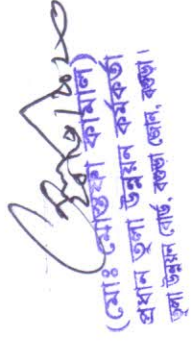 (মোঃ মোস্তফা কামাল)
প্রধান তুলা উন্নয়ন কর্মকর্তা
তুলা উন্নয়ন বোর্ড, বগুড়া জোন, বগুড়া।